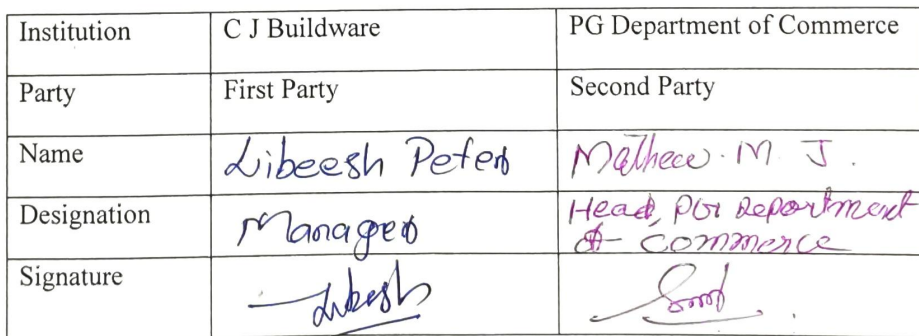 Institution C J Buildware PG Department of Commerce
Party First Party Second Party
Name Libeesh Peter Mathew. M. J.
Designation Manager Head, PG Department
of Commerce
Signature Libeesh